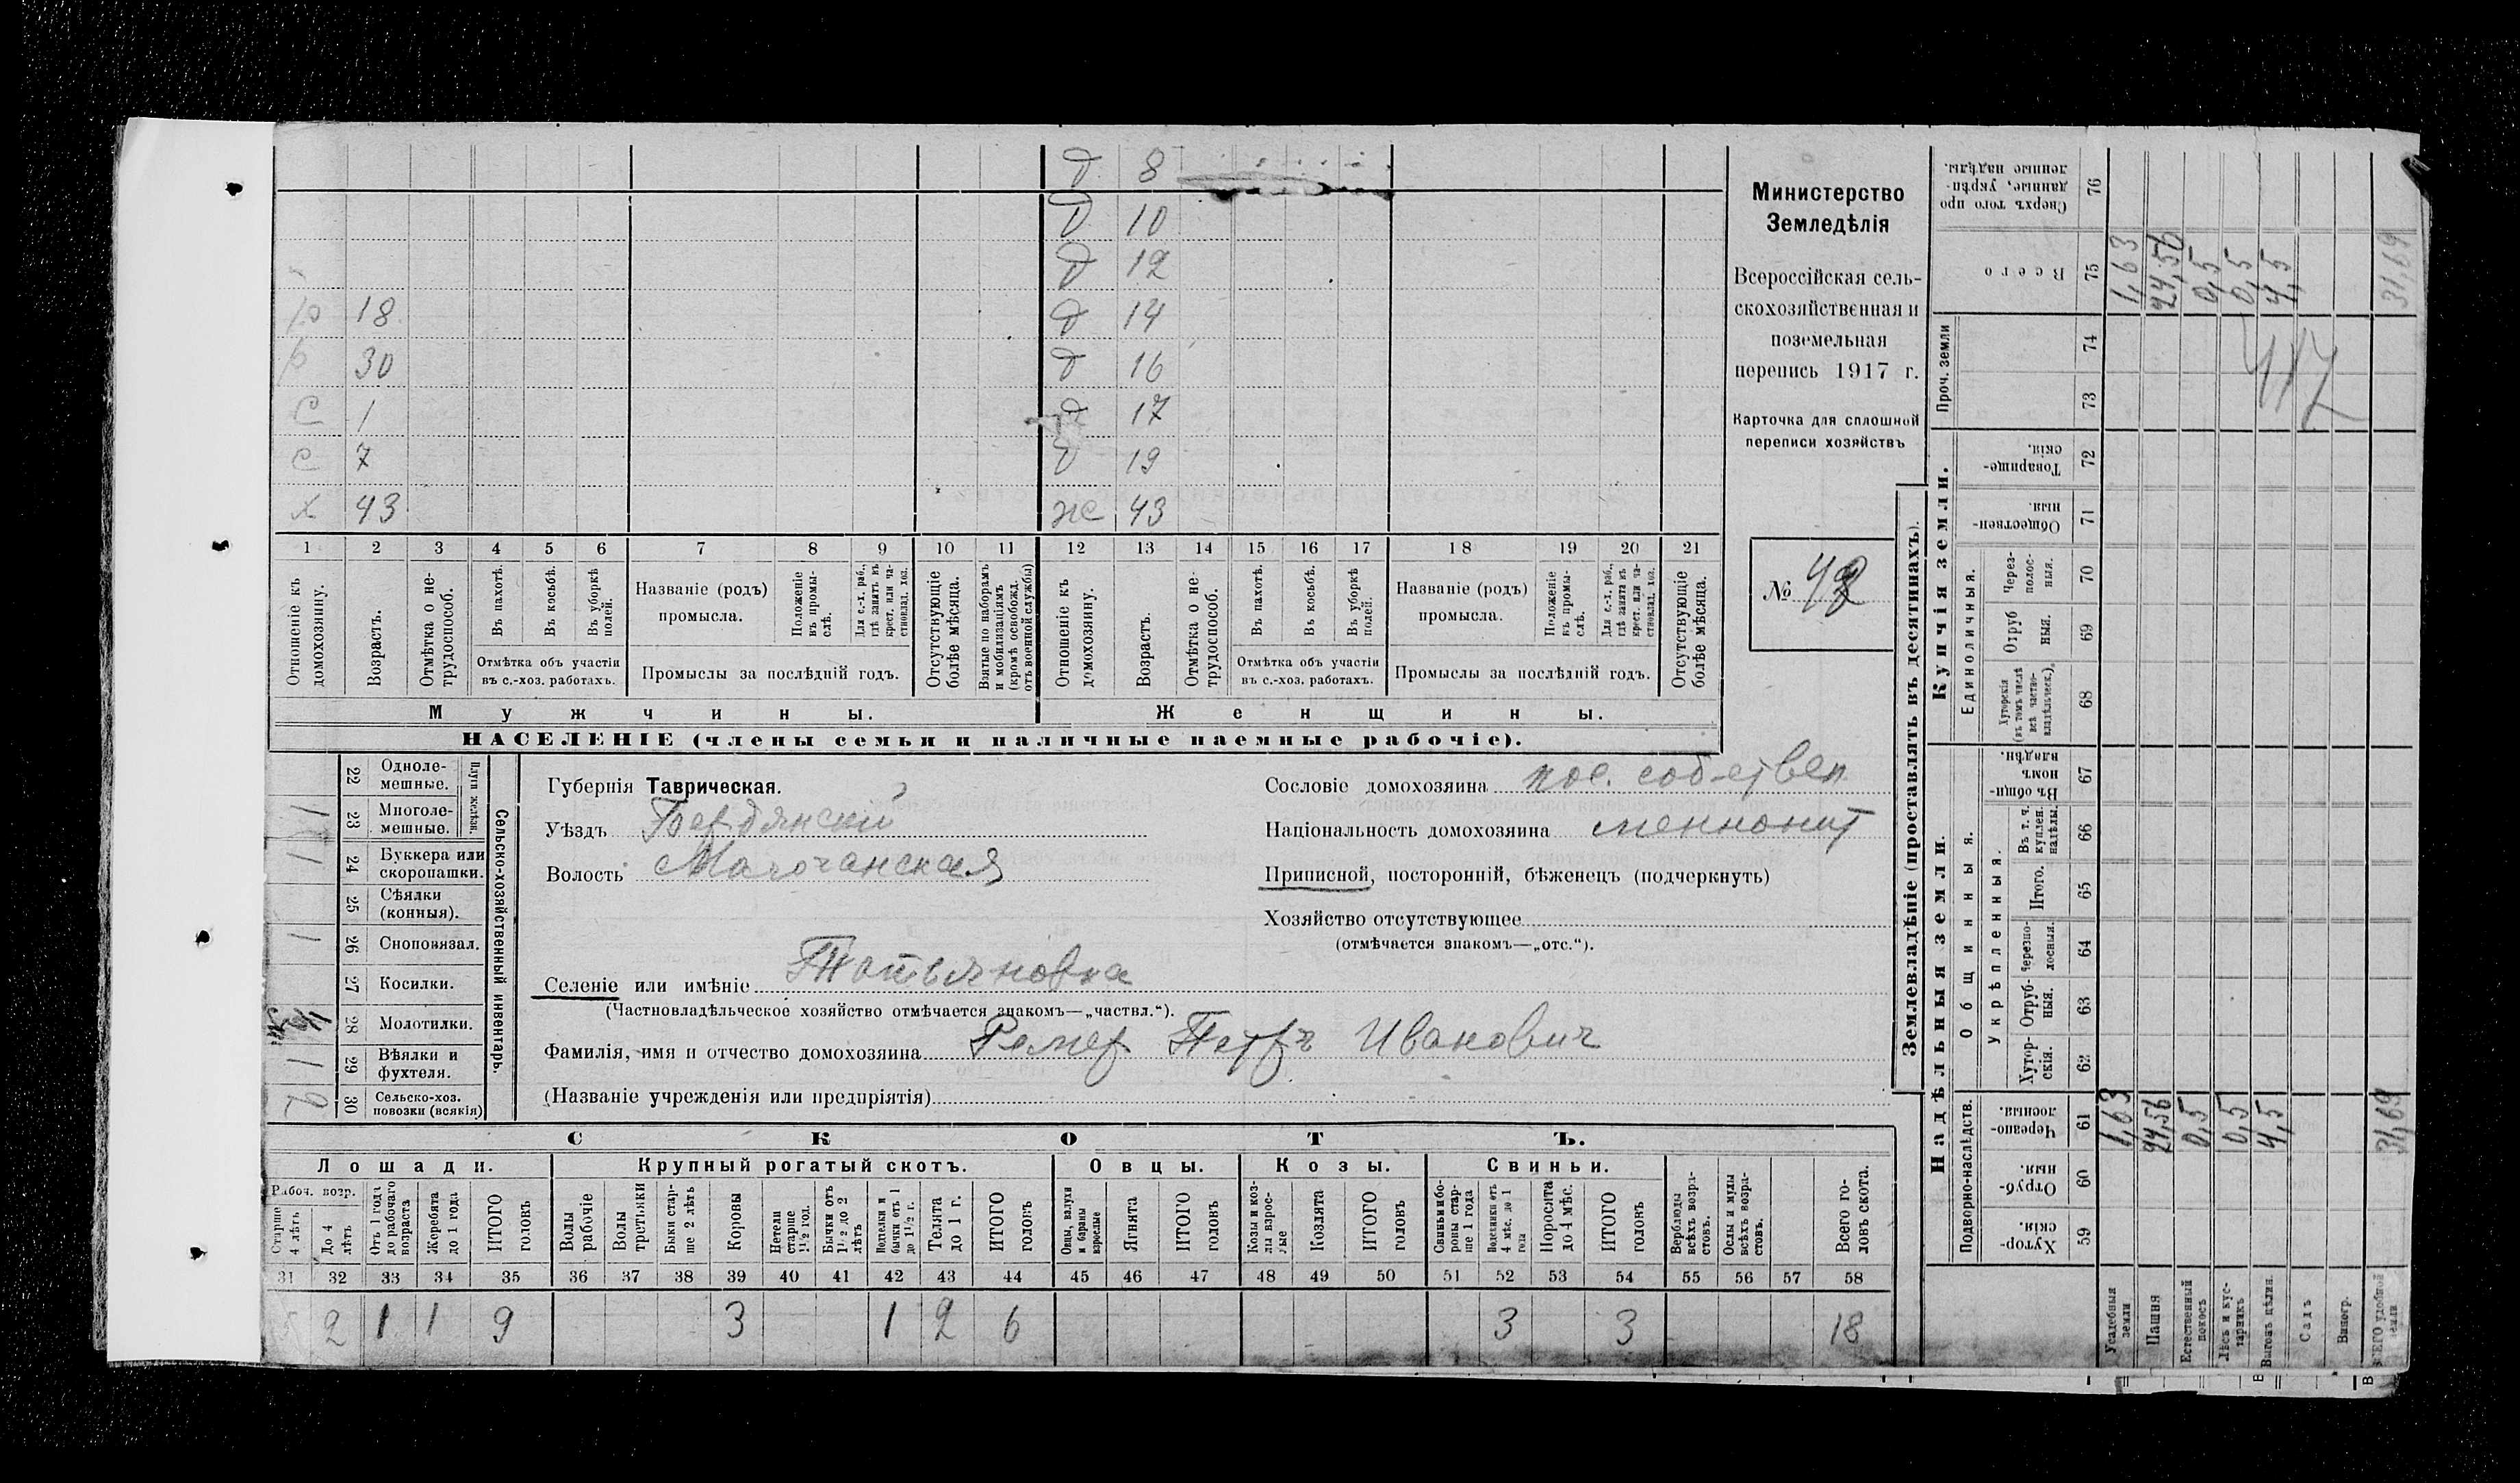 Министерство
Земледѣлія
Всероссійская сель-
скохозяйственная и
поземельная
перепись 1917 г.
Карточка для сплошной
переписи хозяйствъ
№ 42
д 8
д 10
д 12
р 18 д 14
р 30 д 16
с 1 д 17
с 7 д 19
х 43 же 43
1 2 3 4 5 6 7 8 9 10 11 12 13 14 15 16 17 18 19 20 21
Отношеніе къ домохозяину.
Возрастъ.
Отмѣтка о не-трудоспособ.
Въ пахотѣ.
Въ косьбѣ.
Въ уборкѣ полей.
Отмѣтка объ участіи
въ с.-хоз. работахъ.
Названіе (родъ)
промысла.
Положеніе въ промы-слѣ.
Для с.-х. раб., гдѣ занятъ въ крест. или ча-стновлад. хоз.
Промыслы за послѣдній годъ.
Отсутствующіе болѣе мѣсяца.
Взятые по наборамъ и мобилизаціямъ (кромѣ освобожд. отъ военной службы)
Отношеніе къ домохозяину.
Возрастъ.
Отмѣтка о не-трудоспособ.
Въ пахотѣ.
Въ косьбѣ.
Въ уборкѣ полей.
Отмѣтка объ участіи
въ с.-хоз. работахъ.
Названіе (родъ)
промысла.
Положеніе въ промы-слѣ.
Для с.-х. раб., гдѣ занята въ крест. или ча-стновлад. хоз.
Промыслы за послѣдній годъ.
Отсутствующіе болѣе мѣсяца.
Мужчины. Женщины.
НАСЕЛЕНІЕ (члены семьи и наличные наемные рабочіе).
Сельско-хозяйственный инвентарь.
Плуги желѣзн.
22 Одноле-мешные.
1 23 Многоле-мешные.
1 24 Буккера или скоропашки.
25 Сѣялки (конныя).
1 26 Сноповязал.
27 Косилки.
28 Молотилки.
1 29 Вѣялки и фухтеля.
6 30 Сельско-хоз. повозки (всякія)
Губернія Таврическая.
Уѣздъ Бердянский
Волость Молочанская
Селеніе или имѣніе Татьяновка
(Частновладѣльческое хозяйство отмѣчается знакомъ—„частвл.“).
Фамилія, имя и отчество домохозяина Ремер Петръ Иванович
(Названіе учрежденія или предпріятія)
Сословіе домохозяина пос. соб-ствен
Національность домохозяина меннонит
Приписной, посторонній, бѣженецъ (подчеркнуть)
Хозяйство отсутствующее
(отмѣчается знакомъ—„отс.“).
СКОТЪ.
Лошади. Крупный рогатый скотъ. Овцы. Козы. Свиньи.
Рабоч. возр.
Старше 4 лѣтъ
До 4 лѣтъ
Отъ 1 года до рабочаго возраста
Жеребята до 1 года
ИТОГО головъ
Волы рабочіе
Волы третьяки
Быки стар-ше 2 лѣтъ
Коровы
Нетели старше 1½ год.
Бычки отъ 1½ до 2 лѣтъ
Поделки и бычки отъ 1 до 1½ г.
Телята до 1 г.
ИТОГО головъ
Овцы, валухи и бараны взрослые
Ягнята
ИТОГО головъ
Козы и коз-лы взрос-лые
Козлята
ИТОГО головъ
Свиньи и бо-ровы стар-ше 1 года
Подсвинки отъ 4 мѣс. до 1 года
Поросята до 4 мѣс.
ИТОГО головъ
Верблюды всѣхъ возра-стовъ.
Ослы и мулы всѣхъ возра-стовъ.
Всего го-ловъ скота.
31 32 33 34 35 36 37 38 39 40 41 42 43 44 45 46 47 48 49 50 51 52 53 54 55 56 57 58
5 2 1 1 9 3 1 2 6 3 3 18
Землевладѣніе (проставлять въ десятинахъ).
Надѣльныя земли. Купчія земли. Проч. земли
Подворно-наслѣдств.
Общинныя.
Укрѣпленныя.
Единоличныя.
Хутор-скія. 59
Отруб-ныя. 60
Черезпо-лосныя. 61
Хутор-скія. 62
Отруб-ныя. 63
Черезпо-лосныя. 64
Итого. 65
Въ т. ч. куплен. надѣлы. 66
Въ общи-номъ владѣн. 67
Хуторскія (въ томъ числѣ всѣ частно-владѣльческ.). 68
Отруб ныя. 69
Через-полос-ныя. 70
Обществен-ныя. 71
Товарище-скія. 72
73
74
Всего 75
Сверхъ того про данные, укрѣп-ленные надѣлы. 76
Усадебныя земли 1,63 1,63
Пашня 24,56 24,56
Естественный покосъ 0,5 0,5
Лѣсъ и кус-тарникъ 0,5 0,5
Выгонъ цѣлин. 4,5 4,5
Садъ
Виногр.
ВСЕГО удобной земли 31,69 31,69
417